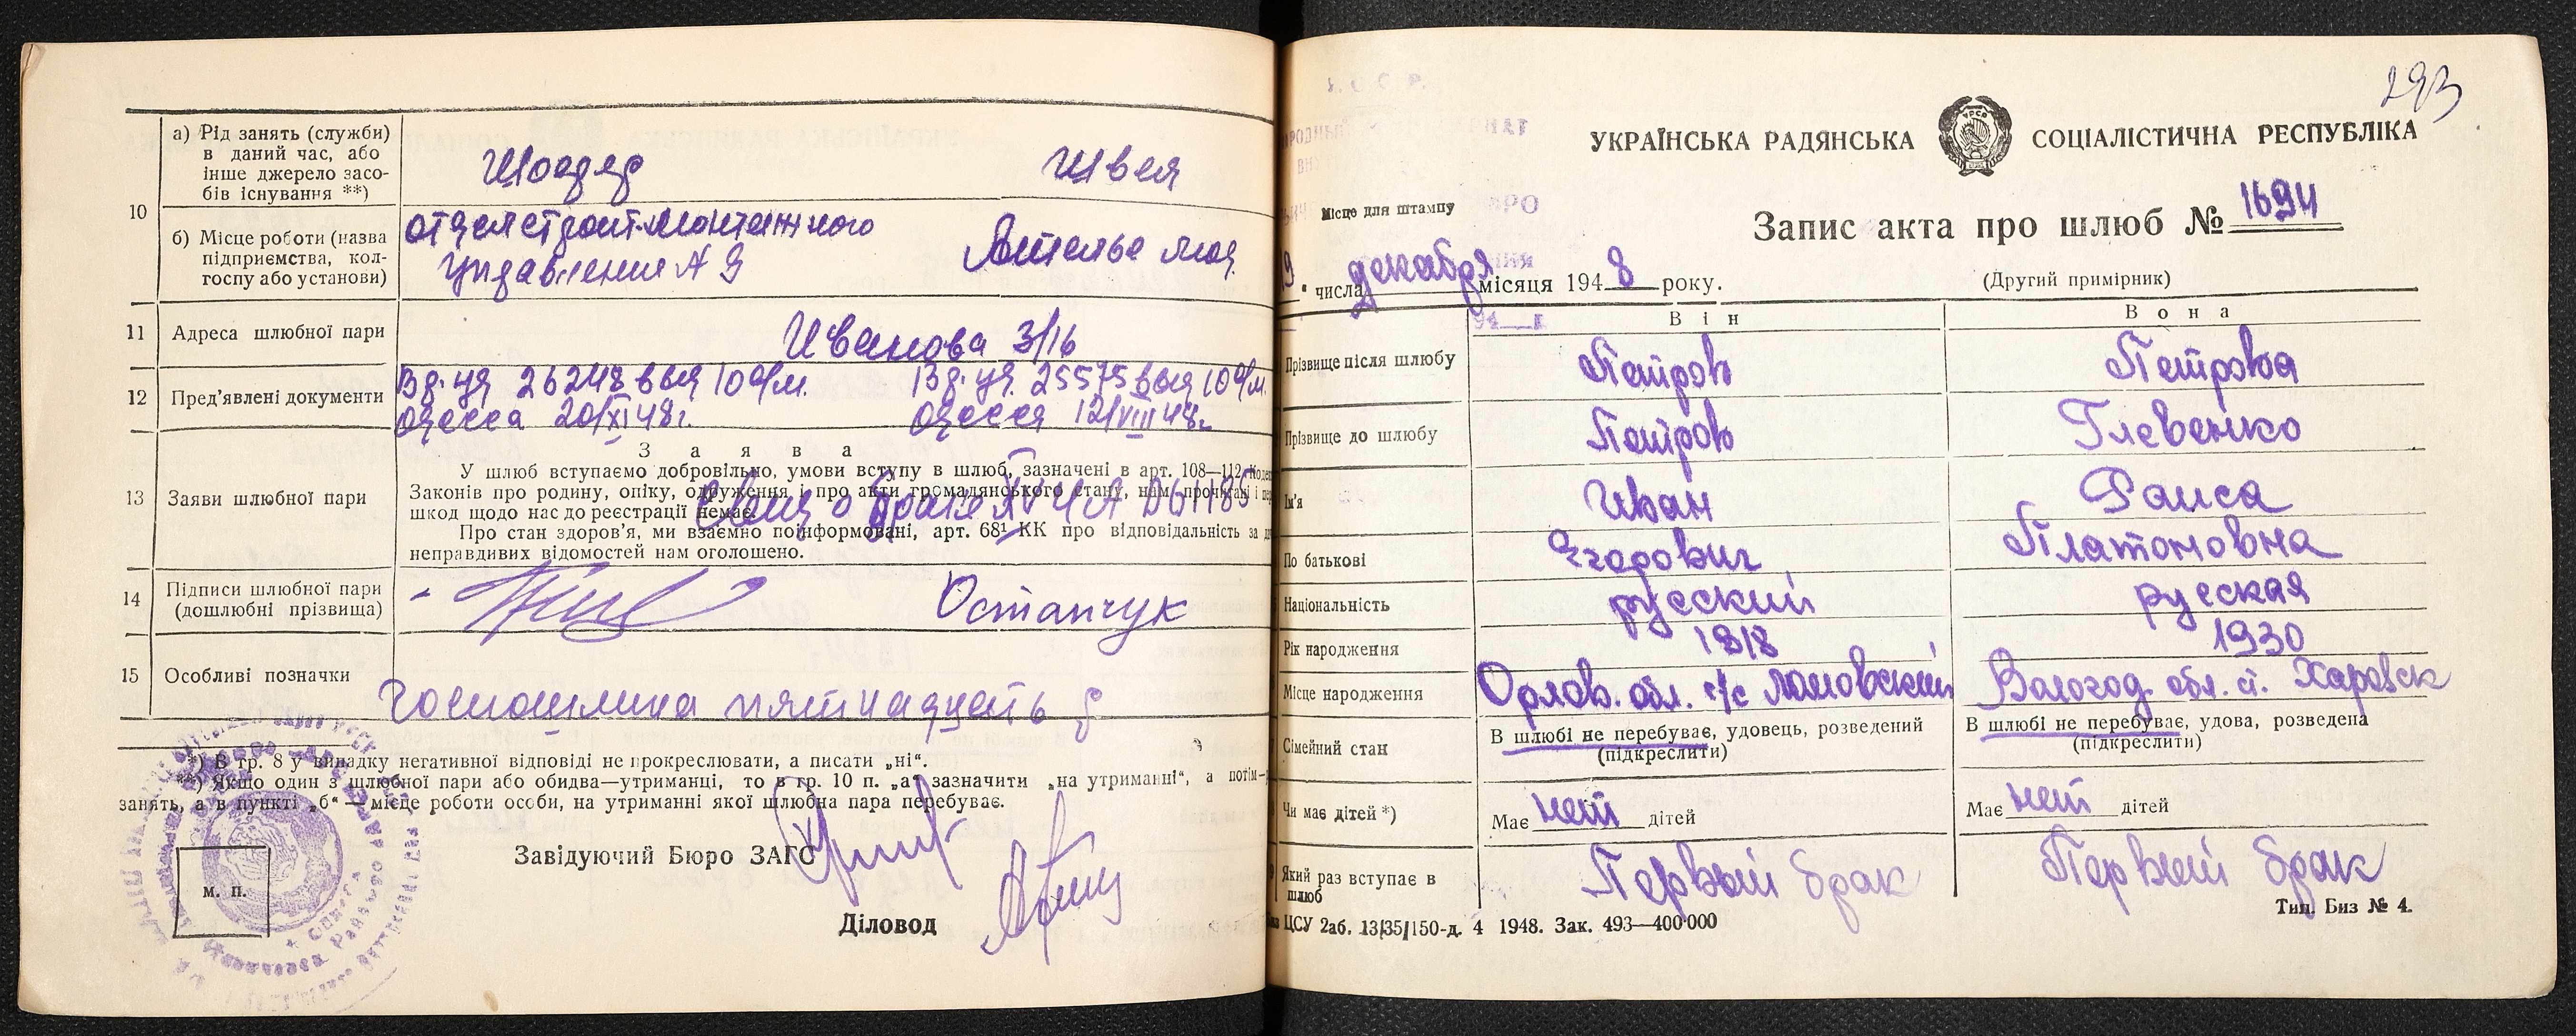 10
а) Рід занять (служби)
в даний час, або
інше джерело засо-
бів існування **)
Швея
б) Місце роботи (назва
підприємства, кол-
госпу або установи)
отдел строит. монтажного
управления
Ателье
11
Адреса шлюбної пари
Иванова 3/16
12
Пред’явлені документи
26248 выд 10 о/м.
25575 выд 10 о/м.
Одесса 20/XI 48г.
Одесса 12/VIII 48г.
13
Заяви шлюбної пари
Заява
У шлюб вступаємо добровільно, умови вступу в шлюб, зазначені в арт. 108—112
Законів про родину, опіку, одруження і про акти громадянського стану, нам прочитані і
шкод щодо нас до реєстрації немає.
Свид о браке IV ЧА 061185
Про стан здоров’я, ми взаємно поінформовані, арт. 68¹ КК про відповідальність за
неправдивих відомостей нам оголошено.
14
Підписи шлюбної пари
(дошлюбні прізвища)
Остапчук
15
Особливі позначки
Госпошлина пятнадцать р
*) В гр. 8 у випадку негативної відповіді не прокреслювати, а писати „ні“.
**) Якщо один з шлюбної пари або обидва—утриманці, то в гр. 10 п. „а“ зазначити „на утриманні“, а потім—
занять, а в пункті „б“—місце роботи особи, на утриманні якої шлюбна пара перебуває.
Завідуючий Бюро ЗАГС
м. п.
Діловод
293
УКРАЇНСЬКА РАДЯНСЬКА СОЦІАЛІСТИЧНА РЕСПУБЛІКА
УРСР
Місце для штампу
Запис акта про шлюб № 1694
9 " числа декабря місяця 1948 року.
(Другий примірник)
Він
Вона
Прізвище після шлюбу
Петров
Петрова
Прізвище до шлюбу
Петров
Глевенко
Ім’я
Иван
Раиса
По батькові
Егорович
Платоновна
Національність
русский
русская
Рік народження
1918
1930
Місце народження
Орлов. обл. с/с Ломовский
Вологод. обл. ст. Харовск
Сімейний стан
В шлюбі не перебуває, удовець, розведений
(підкреслити)
В шлюбі не перебуває, удова, розведена
(підкреслити)
Чи має дітей *)
Має нет дітей
Має нет дітей
Який раз вступає в
шлюб
Первый брак
Первый брак
ЦСУ 2аб. 13/35/150-д. 4 1948. Зак. 493—400·000
Тип. Биз № 4.